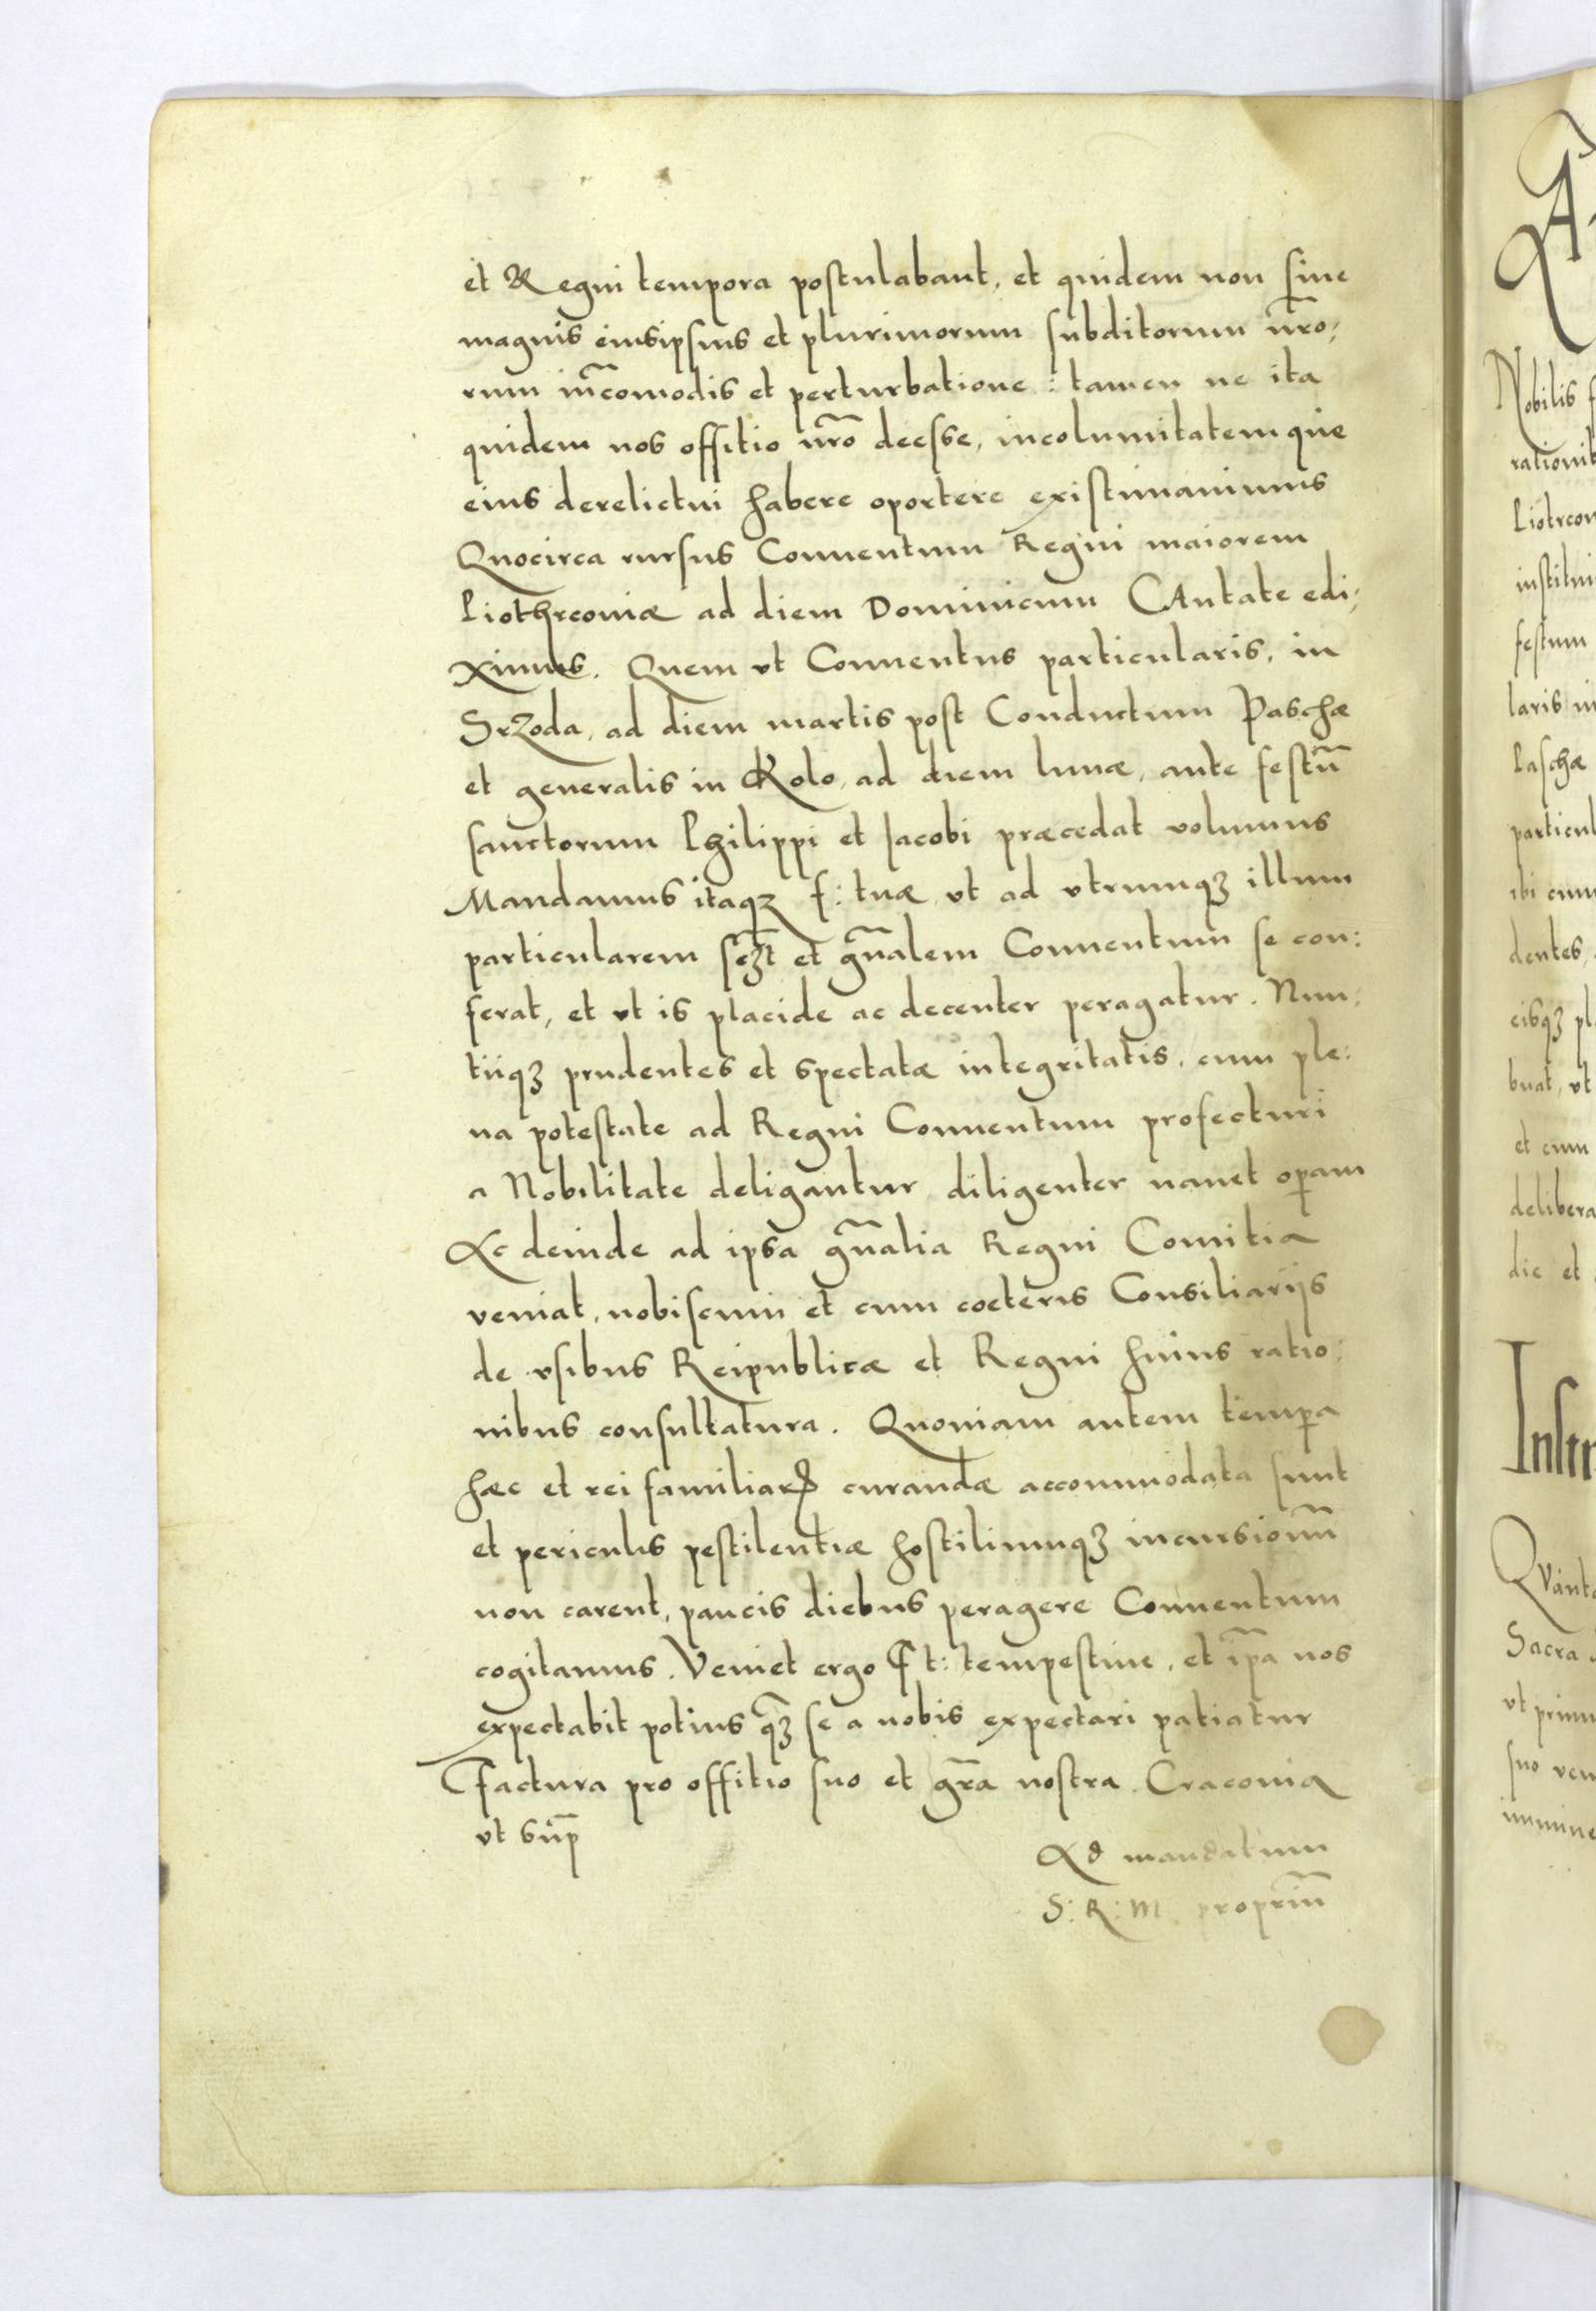 et Regni tempora postulabant, et quidem non sine
magnis eiusipsius et plurimorum subditorum nr̃o,
rum in̄comodis et perturbatione: tamen ne ita
quidem nos offitio nr̃o deesse, incolumitatemque
eius derelictui habere oportere existimauimus
Quocirca rursus Conuentum Regni maiorem
Piothrcouiæ ad diem Dominicum CAntate edi,
ximus. Quem vt Conuentus particularis, in
SrZoda, ad diem martis post Conductum Paschæ
et generalis in Kolo, ad diem lunæ, ante festū
sanctorum Philippi et Iacobi præcedat volumus
Mandamus itaqꝫ f: tuæ vt ad vtrumqꝫ illum
particularem scꝫt et gn̄alem Conuentum se con:
ferat, et vt is placide ac decenter peragatur. Nun:
tiiqꝫ prudentes et spectatæ integritatis, cum ple:
na potestate ad Regni Conuentum profecturi
a Nobilitate deligantur diligenter nauet oꝑam
Ac deinde ad ipsa gn̄alia Regni Comitia
veniat, nobiscum et cum coeteris Consiliarijs
de vsibus Reipublicæ et Regni huius ratio:
nibus consultatura. Quoniam autem temꝑa
hæc et rei familiarꝭ curandæ accommodata sunt
et periculis pestilentiæ hostiliumqꝫ incursionū
non carent, paucis diebus peragere Conuentum
cogitamus. Veniet ergo f t: tempestiue, et ip̄a nos
expectabit potius qꝫ̄ se a nobis expectari patiatur
factura pro offitio suo et gr̄a nostra. Cracouia
vt sup̄
Ad mandatum
S: R: M propriū
A
Nobilis
Piotrcou
festum
laris in
Paschæ
dentes,
eisqꝫ
buat, vt
et cum
die et
Sacra